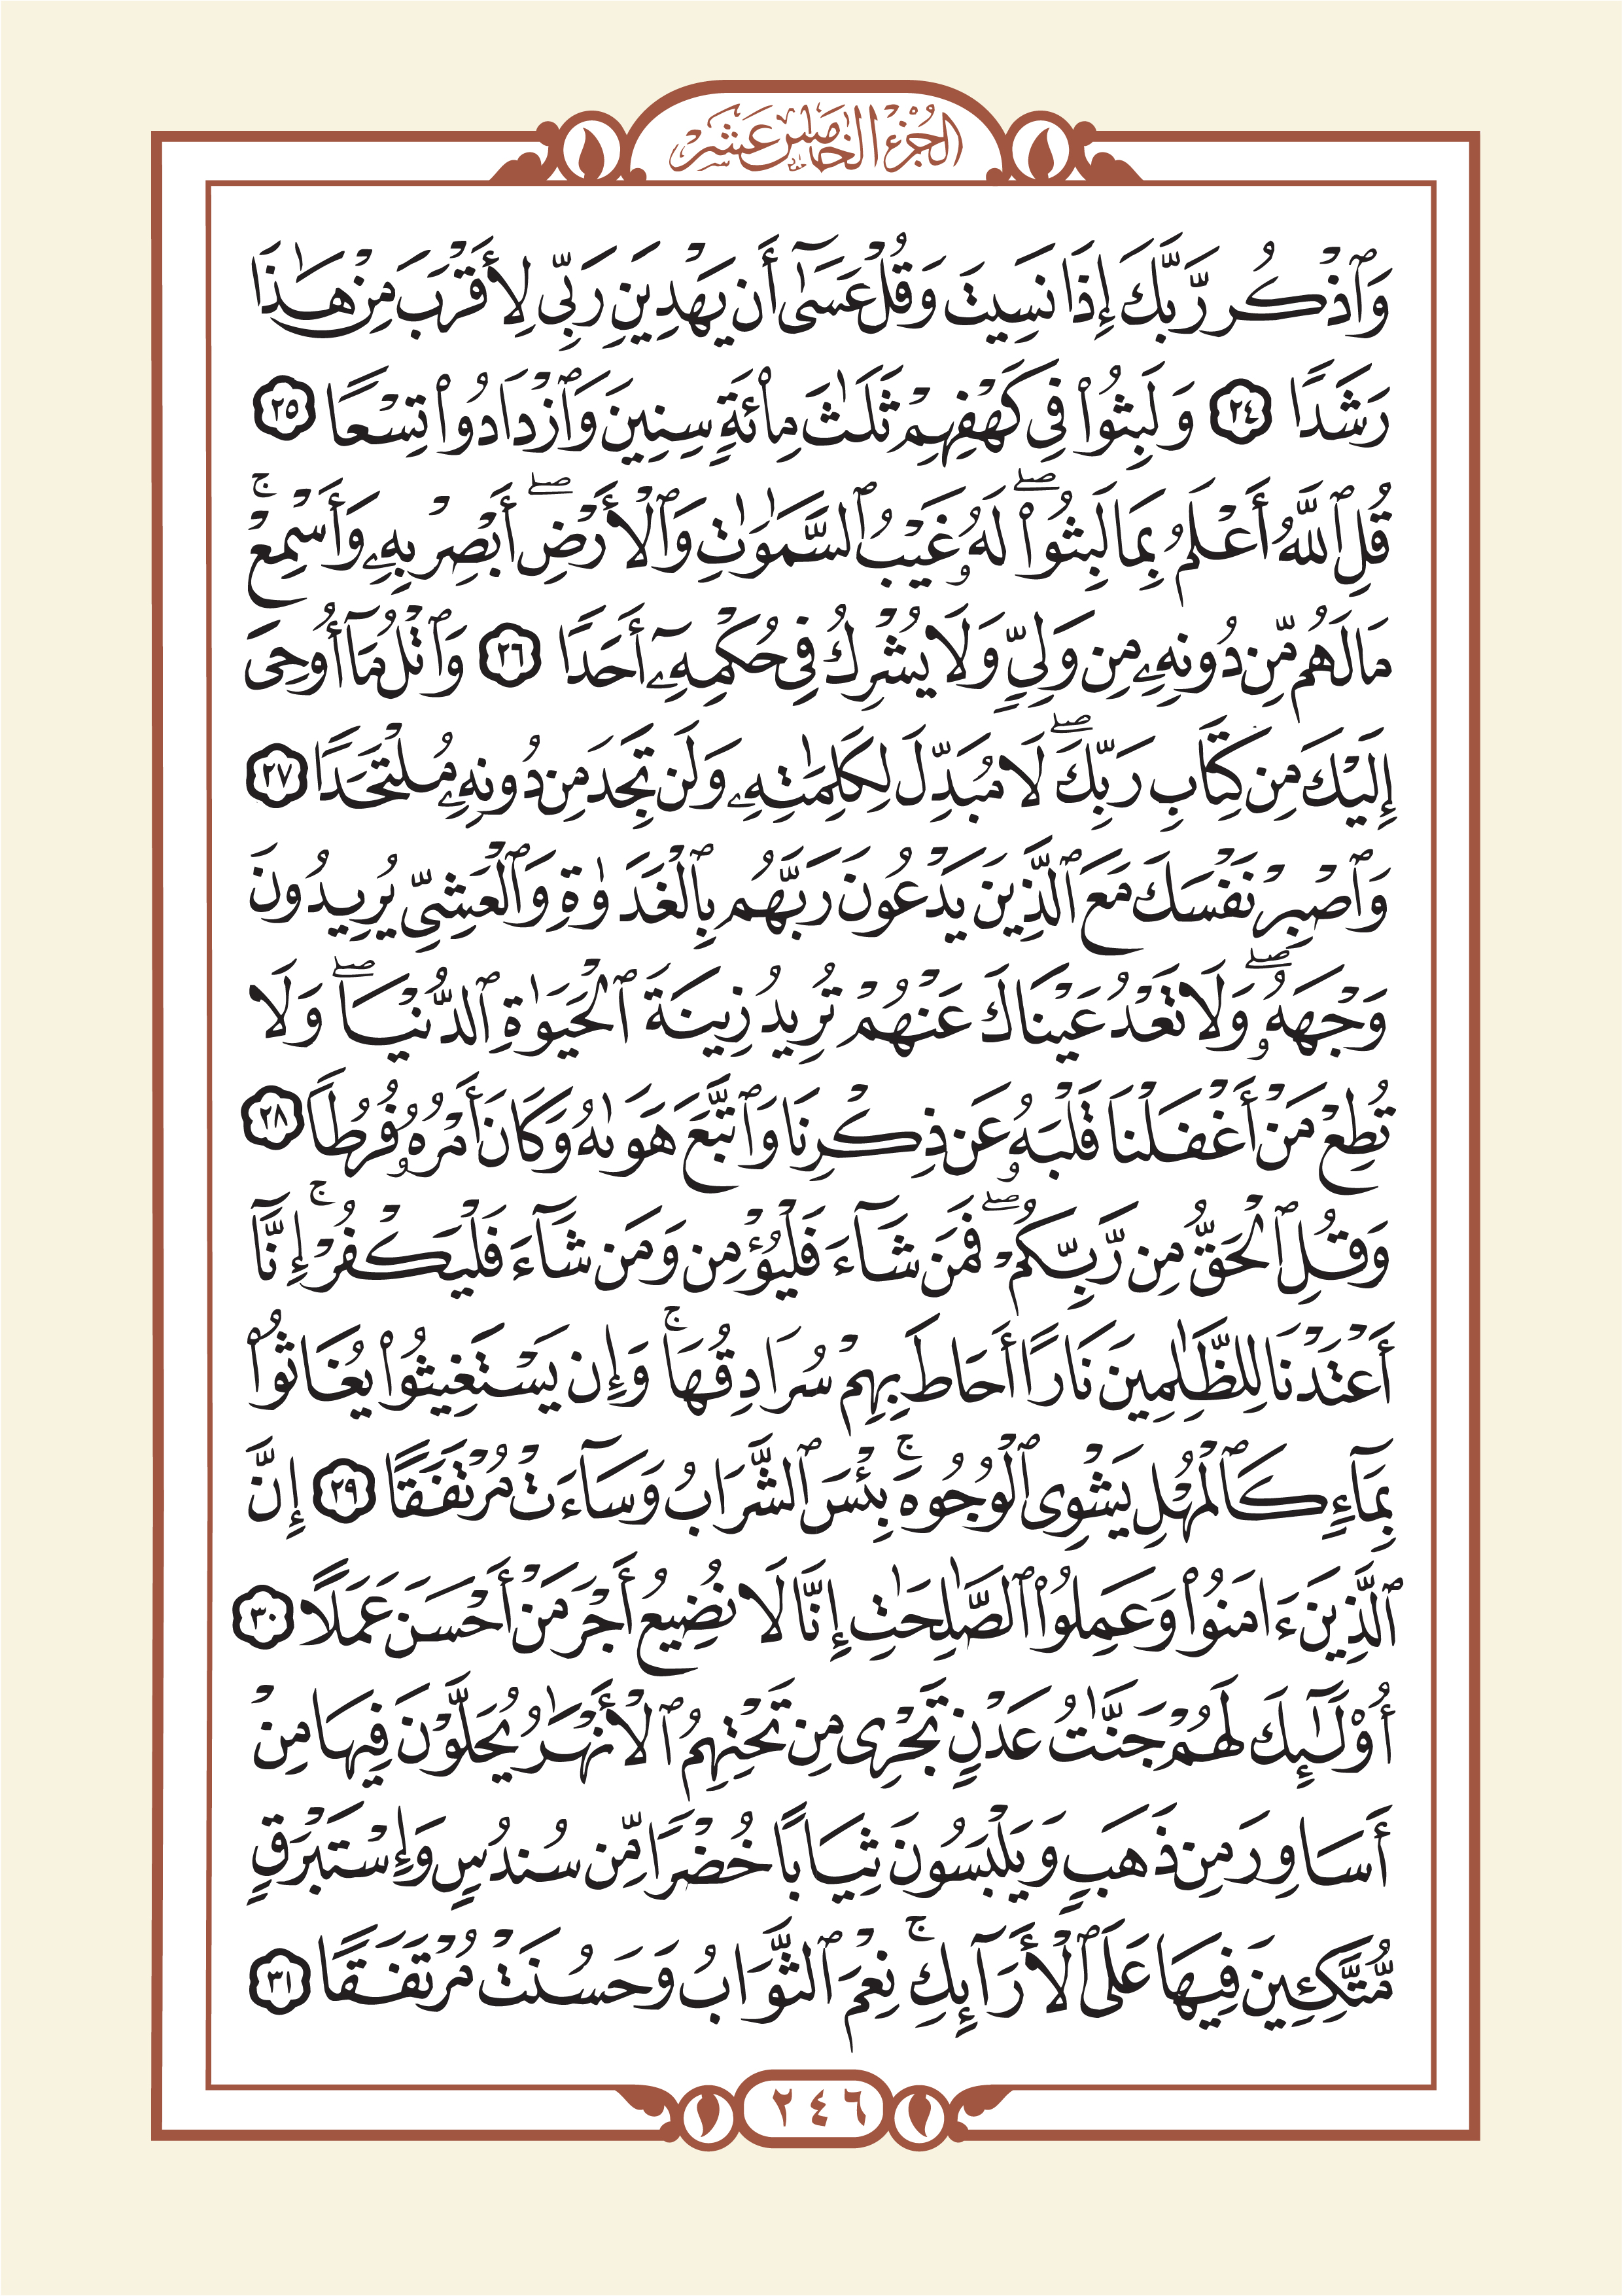 الجزء الخامس عشر
وَٱذْكُر رَّبَّكَ إِذَا نَسِيتَ وَقُلْ عَسَىٰٓ أَن يَهْدِيَنِ رَبِّى لِأَقْرَبَ مِنْ هَـٰذَا
رَشَدًا ٢٤ وَلَبِثُوا۟ فِى كَهْفِهِمْ ثَلَـٰثَ مِا۟ئَةٍ سِنِينَ وَٱزْدَادُوا۟ تِسْعًا ٢٥
قُلِ ٱللَّهُ أَعْلَمُ بِمَا لَبِثُوا۟ ۖ لَهُۥ غَيْبُ ٱلسَّمَـٰوَٰتِ وَٱلْأَرْضِ ۖ أَبْصِرْ بِهِۦ وَأَسْمِعْ ۚ
مَا لَهُم مِّن دُونِهِۦ مِن وَلِىٍّ وَلَا يُشْرِكُ فِى حُكْمِهِۦٓ أَحَدًا ٢٦ وَٱتْلُ مَآ أُوحِىَ
إِلَيْكَ مِن كِتَابِ رَبِّكَ ۖ لَا مُبَدِّلَ لِكَلِمَـٰتِهِۦ وَلَن تَجِدَ مِن دُونِهِۦ مُلْتَحَدًا ٢٧
وَٱصْبِرْ نَفْسَكَ مَعَ ٱلَّذِينَ يَدْعُونَ رَبَّهُم بِٱلْغَدَوٰةِ وَٱلْعَشِىِّ يُرِيدُونَ
وَجْهَهُۥ ۖ وَلَا تَعْدُ عَيْنَاكَ عَنْهُمْ تُرِيدُ زِينَةَ ٱلْحَيَوٰةِ ٱلدُّنْيَا ۖ وَلَا
تُطِعْ مَنْ أَغْفَلْنَا قَلْبَهُۥ عَن ذِكْرِنَا وَٱتَّبَعَ هَوَىٰهُ وَكَانَ أَمْرُهُۥ فُرُطًا ٢٨
وَقُلِ ٱلْحَقُّ مِن رَّبِّكُمْ ۖ فَمَن شَآءَ فَلْيُؤْمِن وَمَن شَآءَ فَلْيَكْفُرْ ۚ إِنَّآ
أَعْتَدْنَا لِلظَّـٰلِمِينَ نَارًا أَحَاطَ بِهِمْ سُرَادِقُهَا ۚ وَإِن يَسْتَغِيثُوا۟ يُغَاثُوا۟
بِمَآءٍ كَٱلْمُهْلِ يَشْوِى ٱلْوُجُوهَ ۚ بِئْسَ ٱلشَّرَابُ وَسَآءَتْ مُرْتَفَقًا ٢٩ إِنَّ
ٱلَّذِينَ ءَامَنُوا۟ وَعَمِلُوا۟ ٱلصَّـٰلِحَـٰتِ إِنَّا لَا نُضِيعُ أَجْرَ مَنْ أَحْسَنَ عَمَلًا ٣٠
أُو۟لَـٰٓئِكَ لَهُمْ جَنَّـٰتُ عَدْنٍ تَجْرِى مِن تَحْتِهِمُ ٱلْأَنْهَـٰرُ يُحَلَّوْنَ فِيهَا مِنْ
أَسَاوِرَ مِن ذَهَبٍ وَيَلْبَسُونَ ثِيَابًا خُضْرًا مِّن سُندُسٍ وَإِسْتَبْرَقٍ
مُّتَّكِـِٔينَ فِيهَا عَلَى ٱلْأَرَآئِكِ ۚ نِعْمَ ٱلثَّوَابُ وَحَسُنَتْ مُرْتَفَقًا ٣١
٢٤٦